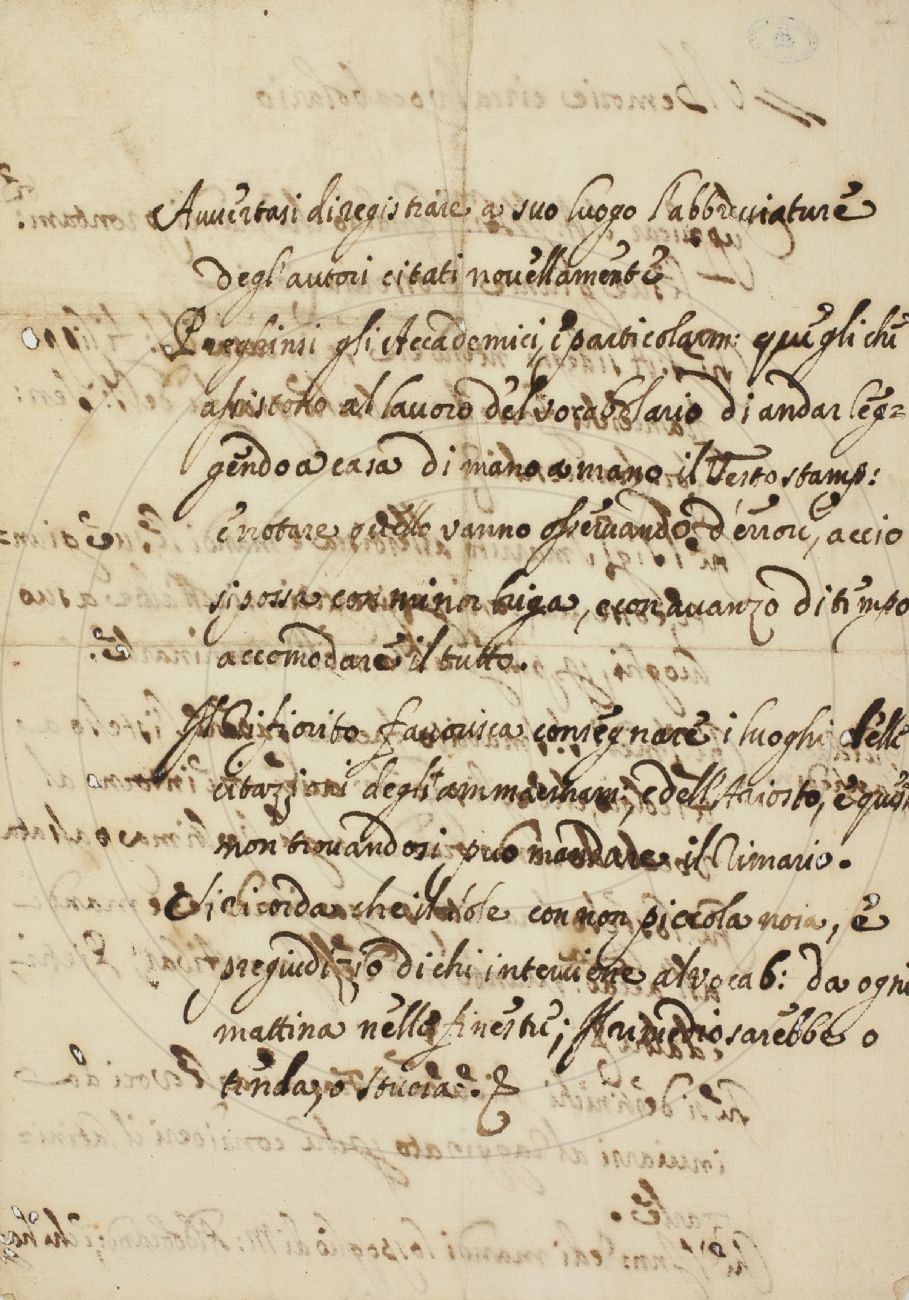 Auuertasi di registrare a suo luogo l'abbreuiature
degl'autori citati nouellamente
Preghinsi gli Accademici, e particolarm: quegli che
assistono al lauoro del vocabolario di andar leg=
gendo a casa di mano a mano il Testo stamp:
e notare quello vanno osseruando d'errori, accio
si possa con minor briga, e con auanzo di tempo
accomodare il tutto.
Il Rifiorito fauorisca consegnare i luoghi delle
citazioni degli ammaestram:, e dell'Ariosto, e questi
non trouandosi può mandare il Rimario.
Si ricorda che il sole con non piccola noia, e
pregiudizio di chi interuiene al vocab: da ogni
mattina nelle finestre; Il rimedio sarebbe o
tenda, o stuoia.